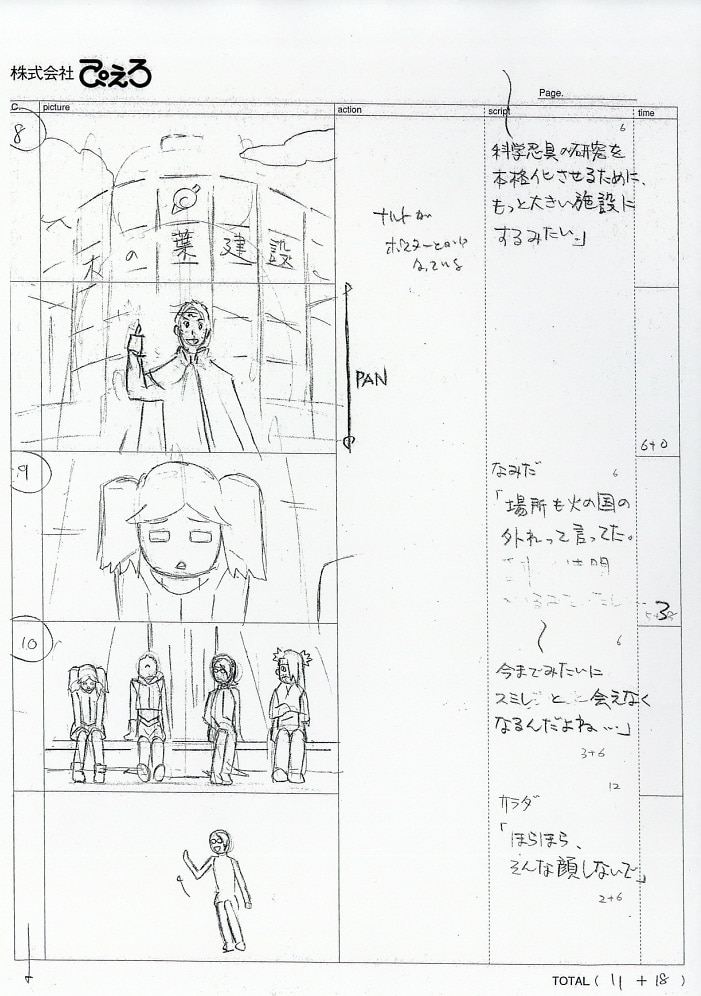 株式会社 ぴえろ
Page.
C. picture action script time
8
木の葉建設
ナルトが
ポスターとかに
なっている
PAN
6
科学忍具の研究を
本格化させるために、
もっと大きい施設に
するみたい。」
6+0
9
なみだ
6
「場所も火の国の
外れって言ってた。
3
10
6
今までみたいに
スミレ と 会えなく
なるんだよね…」
3+6
12
サラダ
「ほらほら、
そんな顔しないで」
2+6
TOTAL ( 11 + 18 )